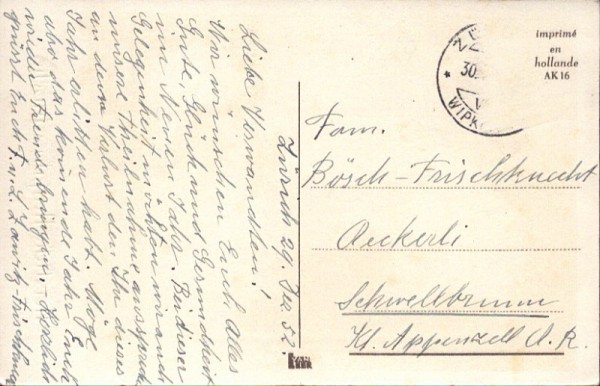 Zürich 29. Dez. 52.
Liebe Verwandten!
Wir wünschen Euch Alles
Gute, Glück und Gesundheit
im Neuen Jahr. Bei dieser
Gelegenheit möchten wir auch
unsere Theilnahme aussprechen
an dem Verlust den Ihr dieses
Jahr erlitten habt. Möge
aber das kommende Jahr Euch
wieder Freude bringen. Herzlich
grüsst Euch Frischknecht
imprimé
en
hollande
AK16
ZÜ
30.
WIPK
Fam.
Bösch-Frischknecht
Aeckerli
Schwellbrunn
Kt. Appenzell A. R.